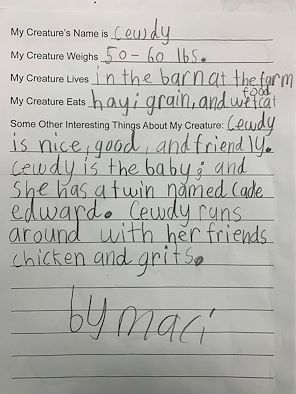 My Creature's Name is Cewdy
My Creature Weighs 50-60 lbs.
My Creature Lives in the barn at the farm
My Creature Eats hay, grain, and wet cat food
Some Other Interesting Things About My Creature: Cewdy
is nice, good, and friendly.
Cewdy is the baby; and
she has a twin named Cade
edward. Cewdy runs
around with her friends
chicken and grits.
by maci